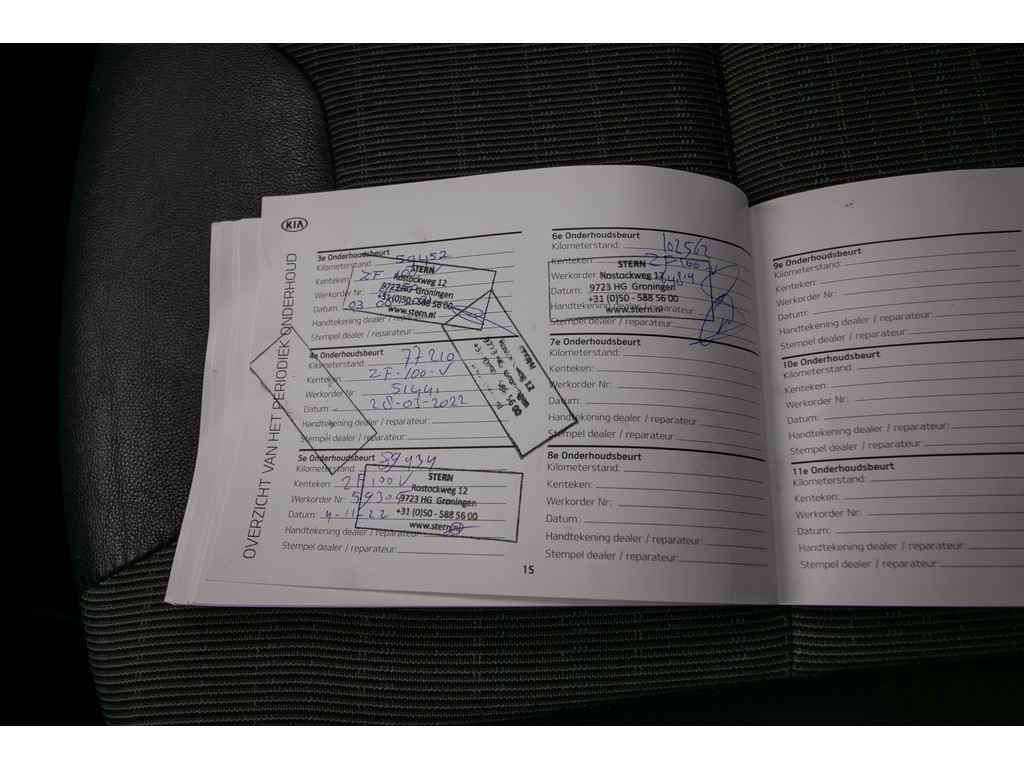 KIA
OVERZICHT VAN HET PERIODIEK ONDERHOUD
3e Onderhoudsbeurt
Kilometerstand: 59452
Kenteken: ZF 100 V
Werkorder Nr:
Datum: 03
Handtekening dealer / reparateur:
Stempel dealer / reparateur:
STERN
Rostockweg 12
9723 HG Groningen
+31 (0)50 - 588 56 00
www.stern.nl
4e Onderhoudsbeurt
Kilometerstand: 77210
Kenteken: ZF-100-V
Werkorder Nr: 51441
Datum: 28-03-2022
Handtekening dealer / reparateur:
Stempel dealer / reparateur:
12
56 00
5e Onderhoudsbeurt
Kilometerstand: 89434
Kenteken: ZF100V
Werkorder Nr: 59309
Datum: 4-11-22
Handtekening dealer / reparateur:
Stempel dealer / reparateur:
STERN
Rostockweg 12
9723 HG Groningen
+31 (0)50 - 588 56 00
www.stern.nl
6e Onderhoudsbeurt
Kilometerstand: 102562
Kenteken: ZF-100-V
Werkorder
Datum:
Handtekening dealer / reparateur:
Stempel dealer / reparateur:
STERN
Rostockweg 12
9723 HG Groningen
+31 (0)50 - 588 56 00
www.stern.nl
7e Onderhoudsbeurt
Kilometerstand:
Kenteken:
Werkorder Nr:
Datum:
Handtekening dealer / reparateur:
Stempel dealer / reparateur:
8e Onderhoudsbeurt
Kilometerstand:
Kenteken:
Werkorder Nr:
Datum:
Handtekening dealer / reparateur:
Stempel dealer / reparateur:
15
9e Onderhoudsbeurt
Kilometerstand:
Kenteken:
Werkorder Nr:
Datum:
Handtekening dealer / reparateur:
Stempel dealer / reparateur:
10e Onderhoudsbeurt
Kilometerstand:
Kenteken:
Werkorder Nr:
Datum:
Handtekening dealer / reparateur:
Stempel dealer / reparateur:
11e Onderhoudsbeurt
Kilometerstand:
Kenteken:
Werkorder Nr:
Datum:
Handtekening dealer / reparateur:
Stempel dealer / reparateur: